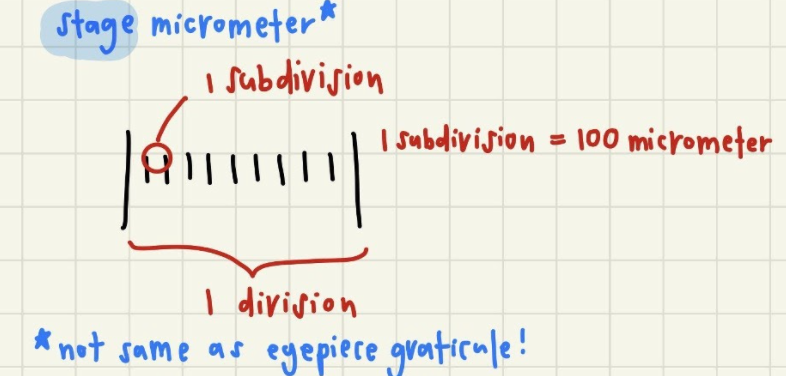 stage micrometer*
1 subdivision
1 subdivision = 100 micrometer
1 division
*not same as eyepiece graticule!